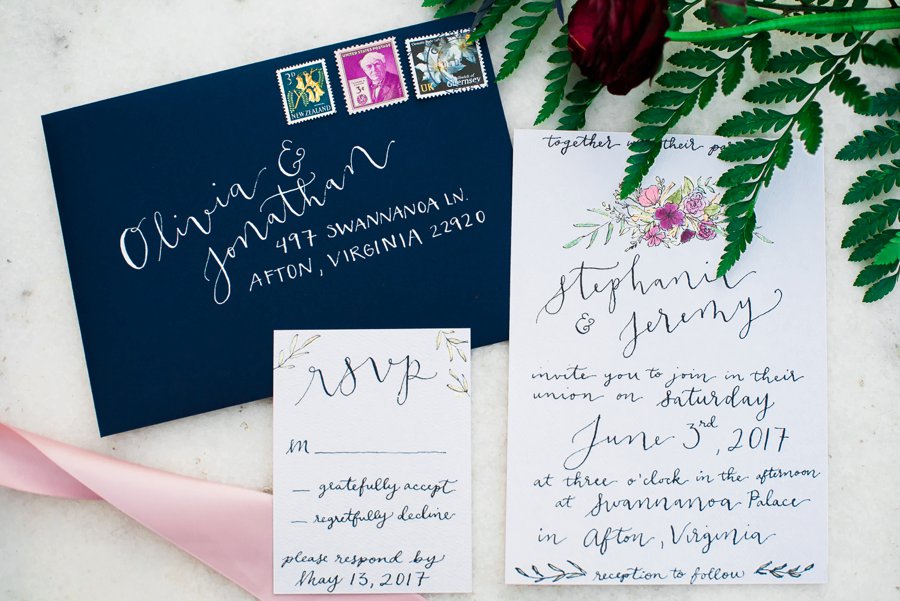 3D
NEW ZEALAND
UNITED STATES POSTAGE
3¢
UK
Guernsey
Olivia &
Jonathan
497 SWANNANOA LN.
AFTON, VIRGINIA 22920
together their
Stephanie
& Jeremy
invite you to join in their
union on Saturday
June 3rd, 2017
at three o'clock in the afternoon
at Swannanoa Palace
in Afton, Virginia
reception to follow
rsvp
M
gratefully accept
regretfully decline
please respond by
May 13, 2017